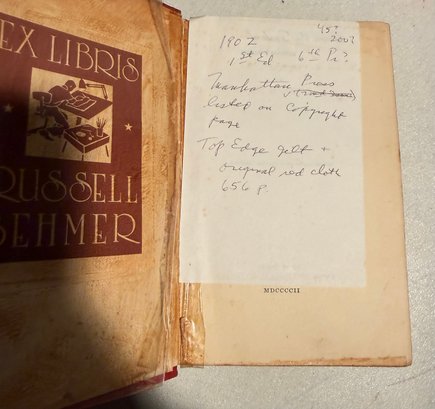 EX LIBRIS
RUSSELL
BEHMER
45?
1902 200?
1st Ed 6th Pr?
Manhattan Press
listed on Copyright
page
Top Edge gilt +
original red cloth
656 p.
MDCCCCII